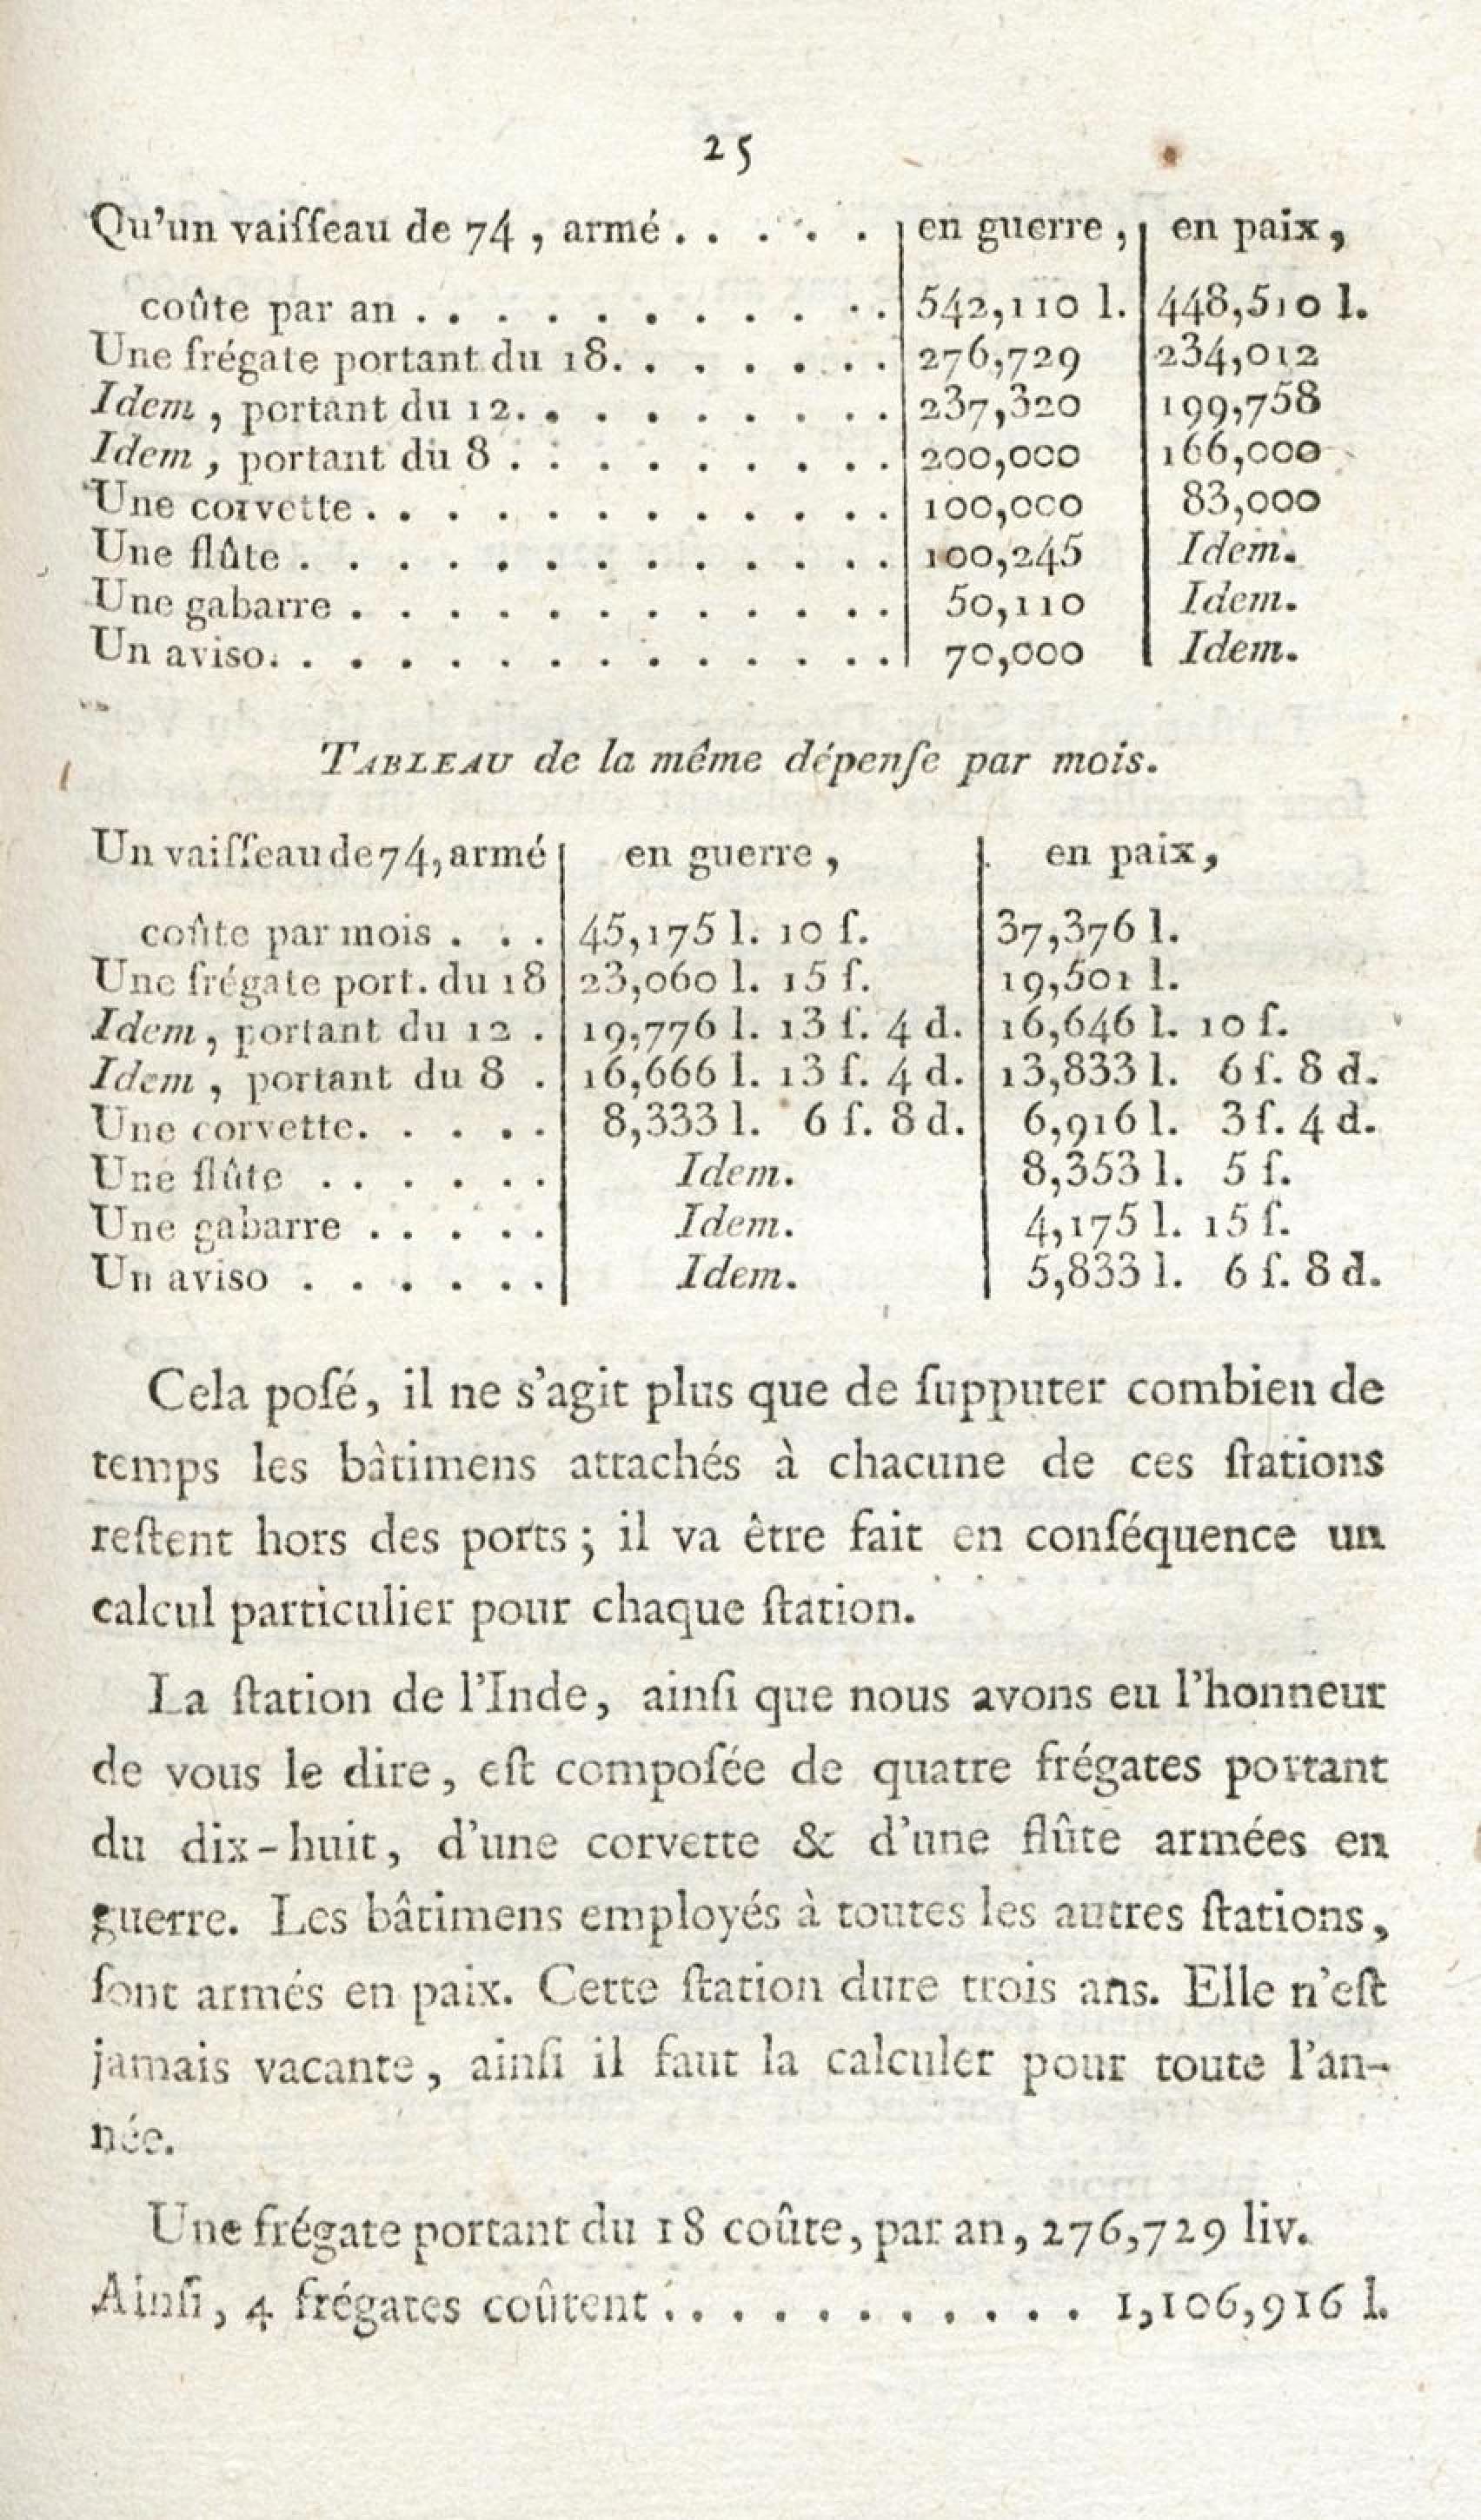 25
Qu'un vaiſſeau de 74, armé . . . . . . en guerre, en paix,
coûte par an . . . . . . . . . . . 542,110 l. 448,510 l.
Une frégate portant du 18. . . . . . . 276,729 234,012
Idem, portant du 12. . . . . . . . . 237,320 199,758
Idem, portant du 8 . . . . . . . . . 200,000 166,000
Une corvette . . . . . . . . . . . . 100,000 83,000
Une flûte . . . . . . . . . . . . . 100,245 Idem.
Une gabarre . . . . . . . . . . . . 50,110 Idem.
Un aviso. . . . . . . . . . . . . . 70,000 Idem.
TABLEAU de la même dépenſe par mois.
Un vaiſſeau de 74, armé en guerre, en paix,
coûte par mois . . . 45,175 l. 10 ſ. 37,376 l.
Une frégate port. du 18 23,060 l. 15 ſ. 19,501 l.
Idem, portant du 12 . 19,776 l. 13 ſ. 4 d. 16,646 l. 10 ſ.
Idem, portant du 8 . 16,666 l. 13 ſ. 4 d. 13,833 l. 6 ſ. 8 d.
Une corvette. . . . . 8,333 l. 6 ſ. 8 d. 6,916 l. 3 ſ. 4 d.
Une flûte . . . . . . Idem. 8,353 l. 5 ſ.
Une gabarre . . . . . Idem. 4,175 l. 15 ſ.
Un aviso . . . . . . Idem. 5,833 l. 6 ſ. 8 d.
Cela poſé, il ne s'agit plus que de ſupputer combien de
temps les bâtimens attachés à chacune de ces ſtations
reſtent hors des ports ; il va être fait en conſéquence un
calcul particulier pour chaque ſtation.
La ſtation de l'Inde, ainſi que nous avons eu l'honneur
de vous le dire, eſt compoſée de quatre frégates portant
du dix-huit, d'une corvette & d'une flûte armées en
guerre. Les bâtimens employés à toutes les autres ſtations,
ſont armés en paix. Cette ſtation dure trois ans. Elle n'eſt
jamais vacante, ainſi il faut la calculer pour toute l'an-
née.
Une frégate portant du 18 coûte, par an, 276,729 liv.
Ainſi, 4 frégates coûtent . . . . . . . . . . . 1,106,916 l.